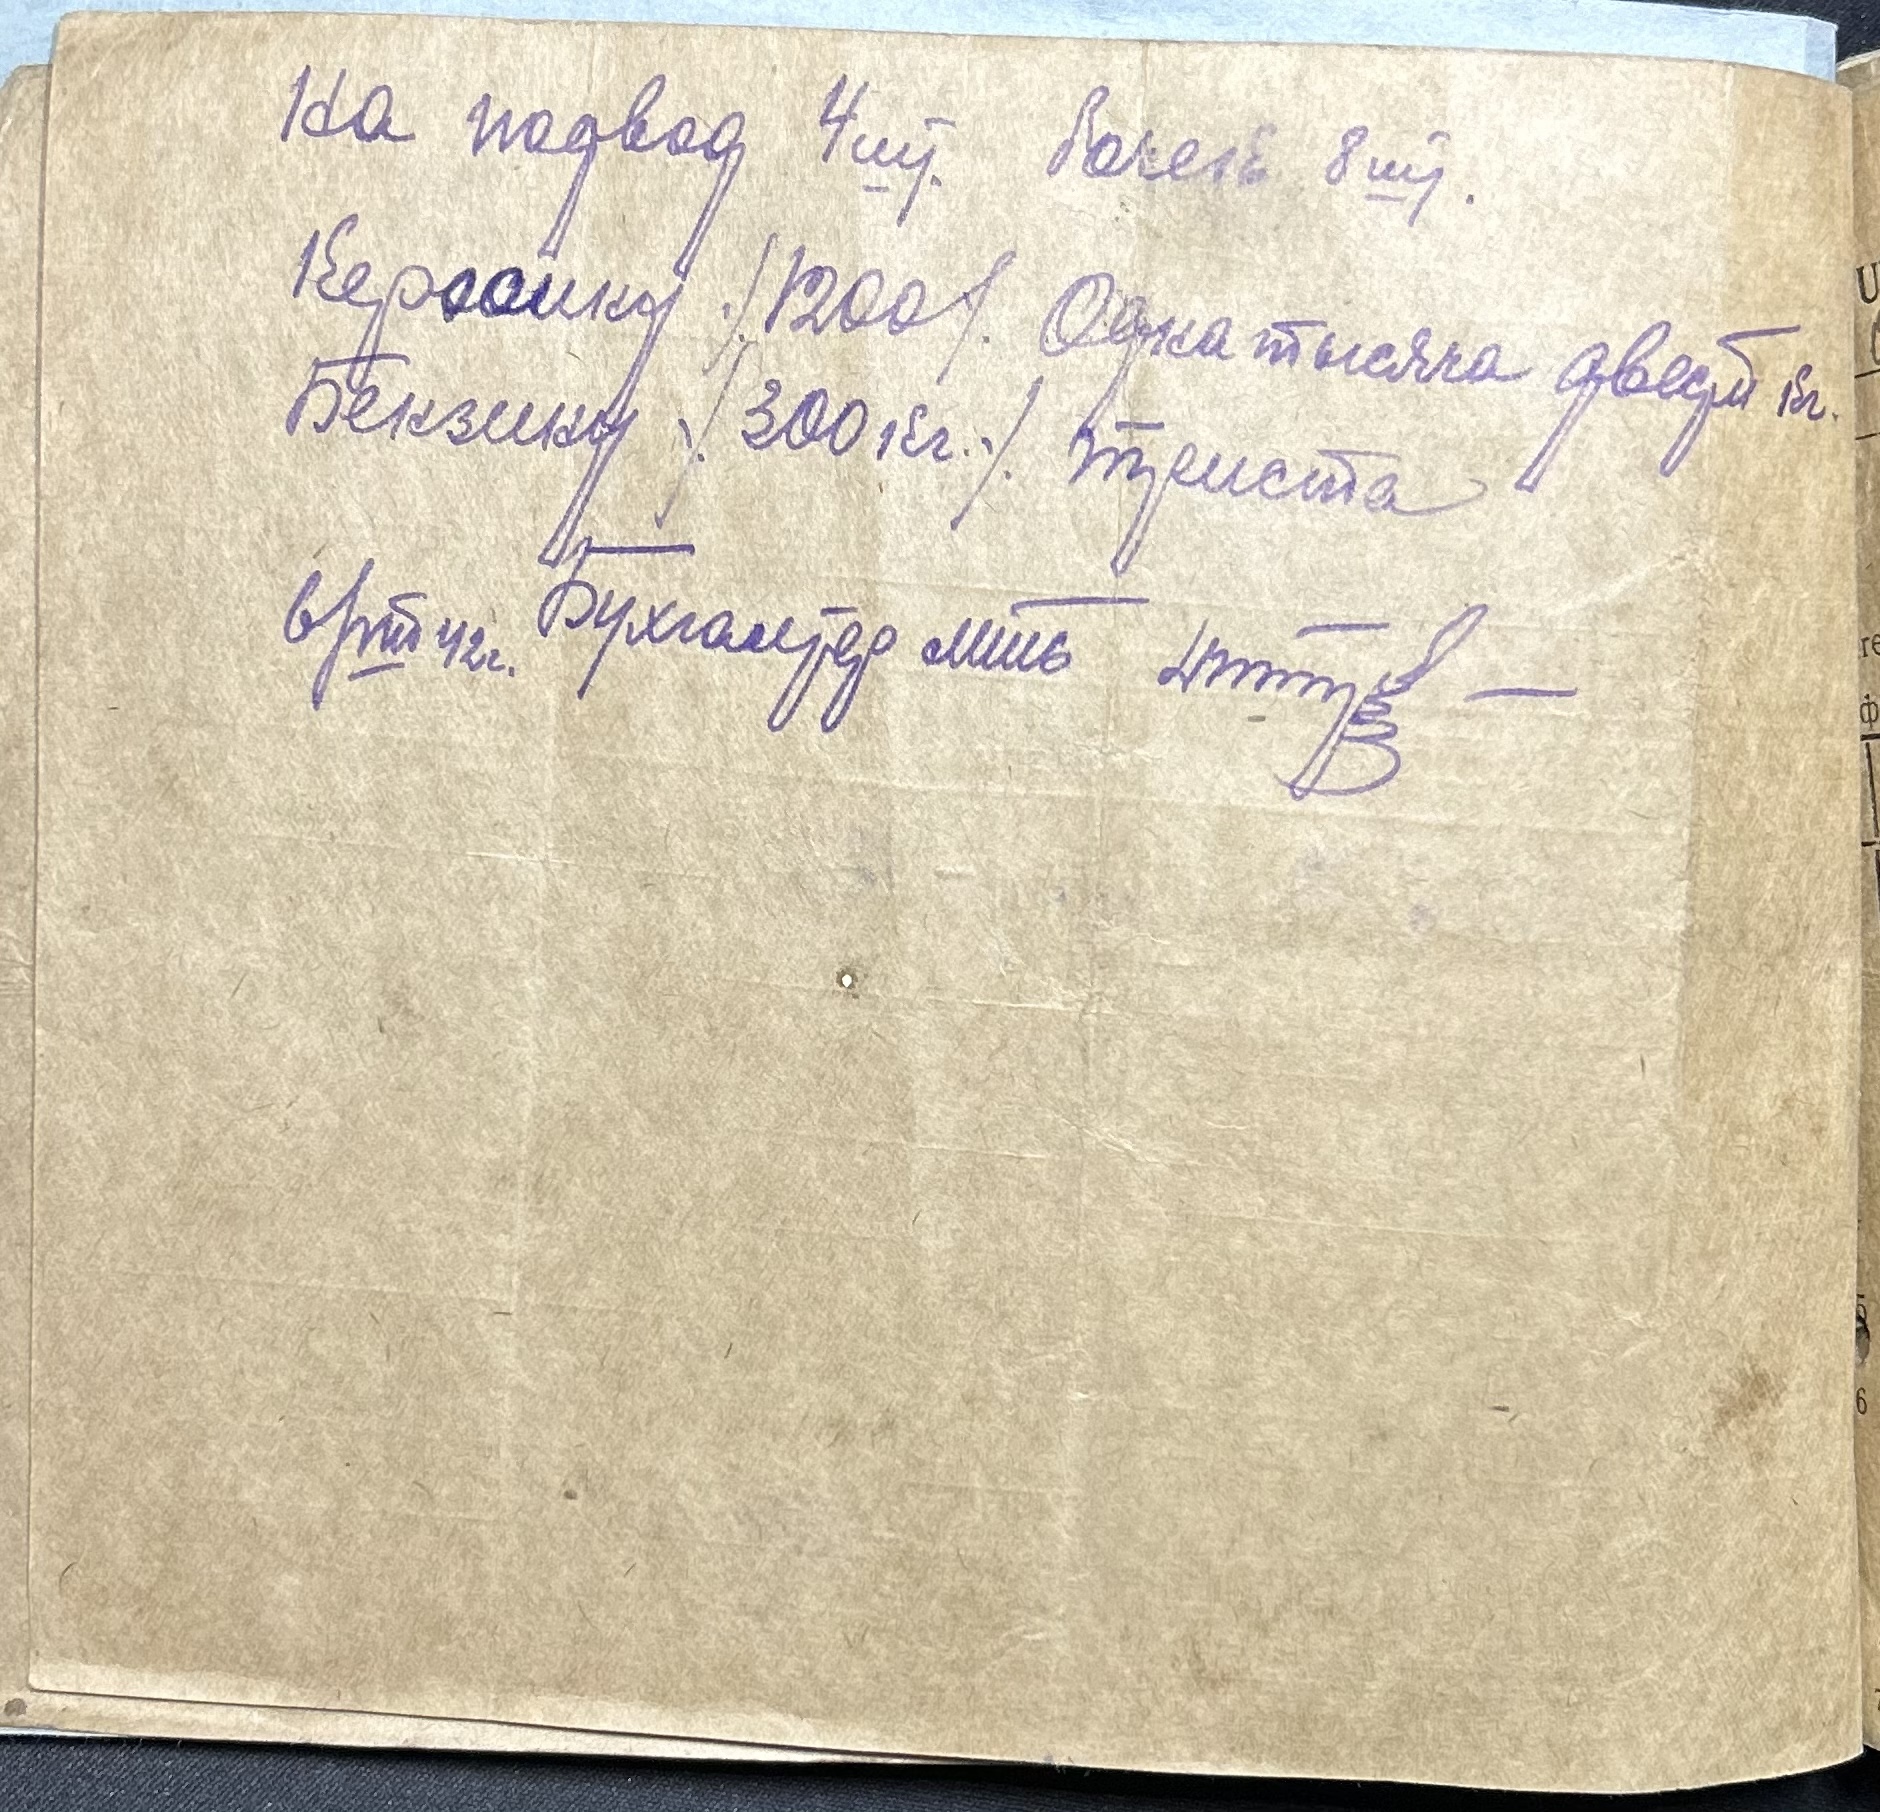 На подвод 4 шт. бочек 8 шт.
Керосину ./1200/. Одна тысяча двести кг.
Бензину ./300 кг./. триста
6/VIII 42г. Бухгалтер МТС